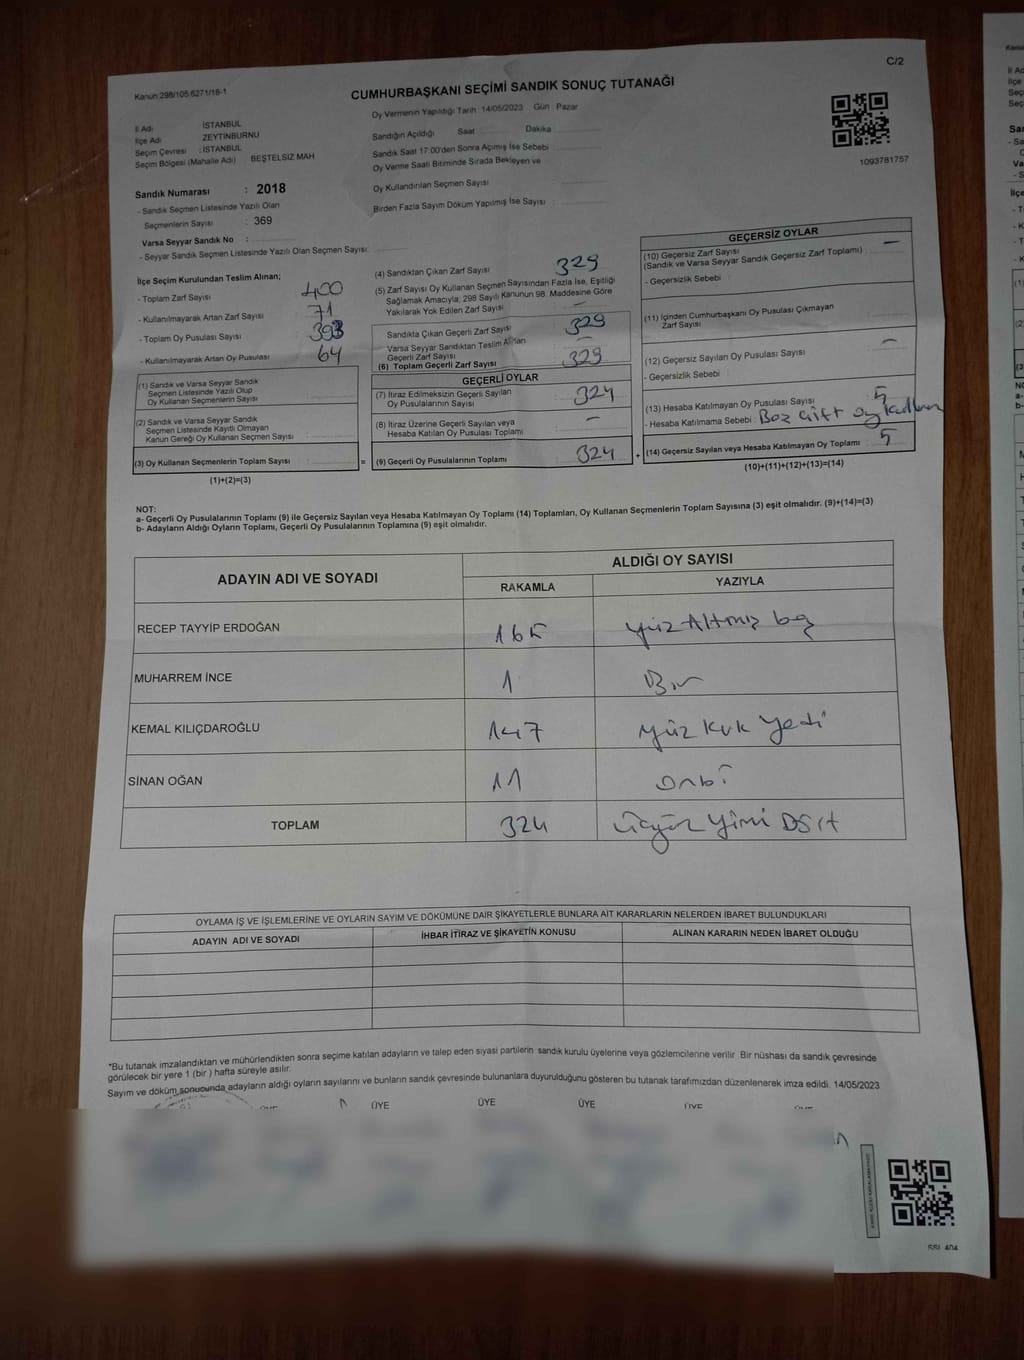 C/2
Kanun:298/105;6271/18-1
CUMHURBAŞKANI SEÇİMİ SANDIK SONUÇ TUTANAĞI
Oy Vermenin Yapıldığı Tarih : 14/05/2023 Gün : Pazar
İl Adı : İSTANBUL
İlçe Adı : ZEYTİNBURNU
Seçim Çevresi : İSTANBUL
Seçim Bölgesi (Mahalle Adı) BEŞTELSİZ MAH
Sandık Numarası : 2018
- Sandık Seçmen Listesinde Yazılı Olan
Seçmenlerin Sayısı : 369
Varsa Seyyar Sandık No :
- Seyyar Sandık Seçmen Listesinde Yazılı Olan Seçmen Sayısı:
Sandığın Açıldığı Saat Dakika
Sandık Saat 17:00'den Sonra Açımış İse Sebebi
Oy Verme Saati Bitiminde Sırada Bekleyen ve
Oy Kullandırılan Seçmen Sayısı
Birden Fazla Sayım Döküm Yapılmış İse Sayısı :
1093781757
İlçe Seçim Kurulundan Teslim Alınan;
- Toplam Zarf Sayısı 400
- Kullanılmayarak Artan Zarf Sayısı : 71
- Toplam Oy Pusulası Sayısı 393
- Kullanılmayarak Artan Oy Pusulası 64
(1) Sandık ve Varsa Seyyar Sandık
Seçmen Listesinde Yazılı Olup
Oy Kullanan Seçmenlerin Sayısı :
(2) Sandık ve Varsa Seyyar Sandık
Seçmen Listesinde Kayıtlı Olmayan
Kanun Gereği Oy Kullanan Seçmen Sayısı :
(3) Oy Kullanan Seçmenlerin Toplam Sayısı :
(1)+(2)=(3)
(4) Sandıktan Çıkan Zarf Sayısı 329
(5) Zarf Sayısı Oy Kullanan Seçmen Sayısından Fazla İse, Eşitliği
Sağlamak Amacıyla, 298 Sayılı Kanunun 98. Maddesine Göre
Yakılarak Yok Edilen Zarf Sayısı : -
Sandıkta Çıkan Geçerli Zarf Sayısı 329
Varsa Seyyar Sandıktan Teslim Alınan
Geçerli Zarf Sayısı -
(6) Toplam Geçerli Zarf Sayısı : 329
GEÇERLİ OYLAR
(7) İtiraz Edilmeksizin Geçerli Sayılan
Oy Pusulalarının Sayısı : 324
(8) İtiraz Üzerine Geçerli Sayılan veya
Hesaba Katılan Oy Pusulası Toplamı : -
= (9) Geçerli Oy Pusulalarının Toplamı : 324 +
GEÇERSİZ OYLAR
(10) Geçersiz Zarf Sayısı -
(Sandık ve Varsa Seyyar Sandık Geçersiz Zarf Toplamı)
- Geçersizlik Sebebi :
(11) İçinden Cumhurbaşkanı Oy Pusulası Çıkmayan
Zarf Sayısı
(12) Geçersiz Sayılan Oy Pusulası Sayısı : -
- Geçersizlik Sebebi :
(13) Hesaba Katılmayan Oy Pusulası Sayısı : 5
- Hesaba Katılmama Sebebi : Boş Çift oy
(14) Geçersiz Sayılan veya Hesaba Katılmayan Oy Toplamı : 5
(10)+(11)+(12)+(13)=(14)
NOT:
a- Geçerli Oy Pusulalarının Toplamı (9) ile Geçersiz Sayılan veya Hesaba Katılmayan Oy Toplamı (14) Toplamları, Oy Kullanan Seçmenlerin Toplam Sayısına (3) eşit olmalıdır. (9)+(14)=(3)
b- Adayların Aldığı Oyların Toplamı, Geçerli Oy Pusulalarının Toplamına (9) eşit olmalıdır.
ADAYIN ADI VE SOYADI ALDIĞI OY SAYISI
RAKAMLA YAZIYLA
RECEP TAYYİP ERDOĞAN 165 Yüz Altmış beş
MUHARREM İNCE 1 Bir
KEMAL KILIÇDAROĞLU 147 Yüz Kırk Yedi
SİNAN OĞAN 11 Onbir
TOPLAM 324 Üçyüz Yirmi Dört
OYLAMA İŞ VE İŞLEMLERİNE VE OYLARIN SAYIM VE DÖKÜMÜNE DAİR ŞİKAYETLERLE BUNLARA AİT KARARLARIN NELERDEN İBARET BULUNDUKLARI
ADAYIN ADI VE SOYADI İHBAR İTİRAZ VE ŞİKAYETİN KONUSU ALINAN KARARIN NEDEN İBARET OLDUĞU
*Bu tutanak imzalandıktan ve mühürlendikten sonra seçime katılan adayların ve talep eden siyasi partilerin sandık kurulu üyelerine veya gözlemcilerine verilir. Bir nüshası da sandık çevresinde
görülecek bir yere 1 (bir ) hafta süreyle asılır.
Sayım ve döküm sonucunda adayların aldığı oyların sayılarını ve bunların sandık çevresinde bulunanlara duyurulduğunu gösteren bu tutanak tarafımızdan düzenlenerek imza edildi. 14/05/2023
ÜYE ÜYE ÜYE ÜYE
SSI 404